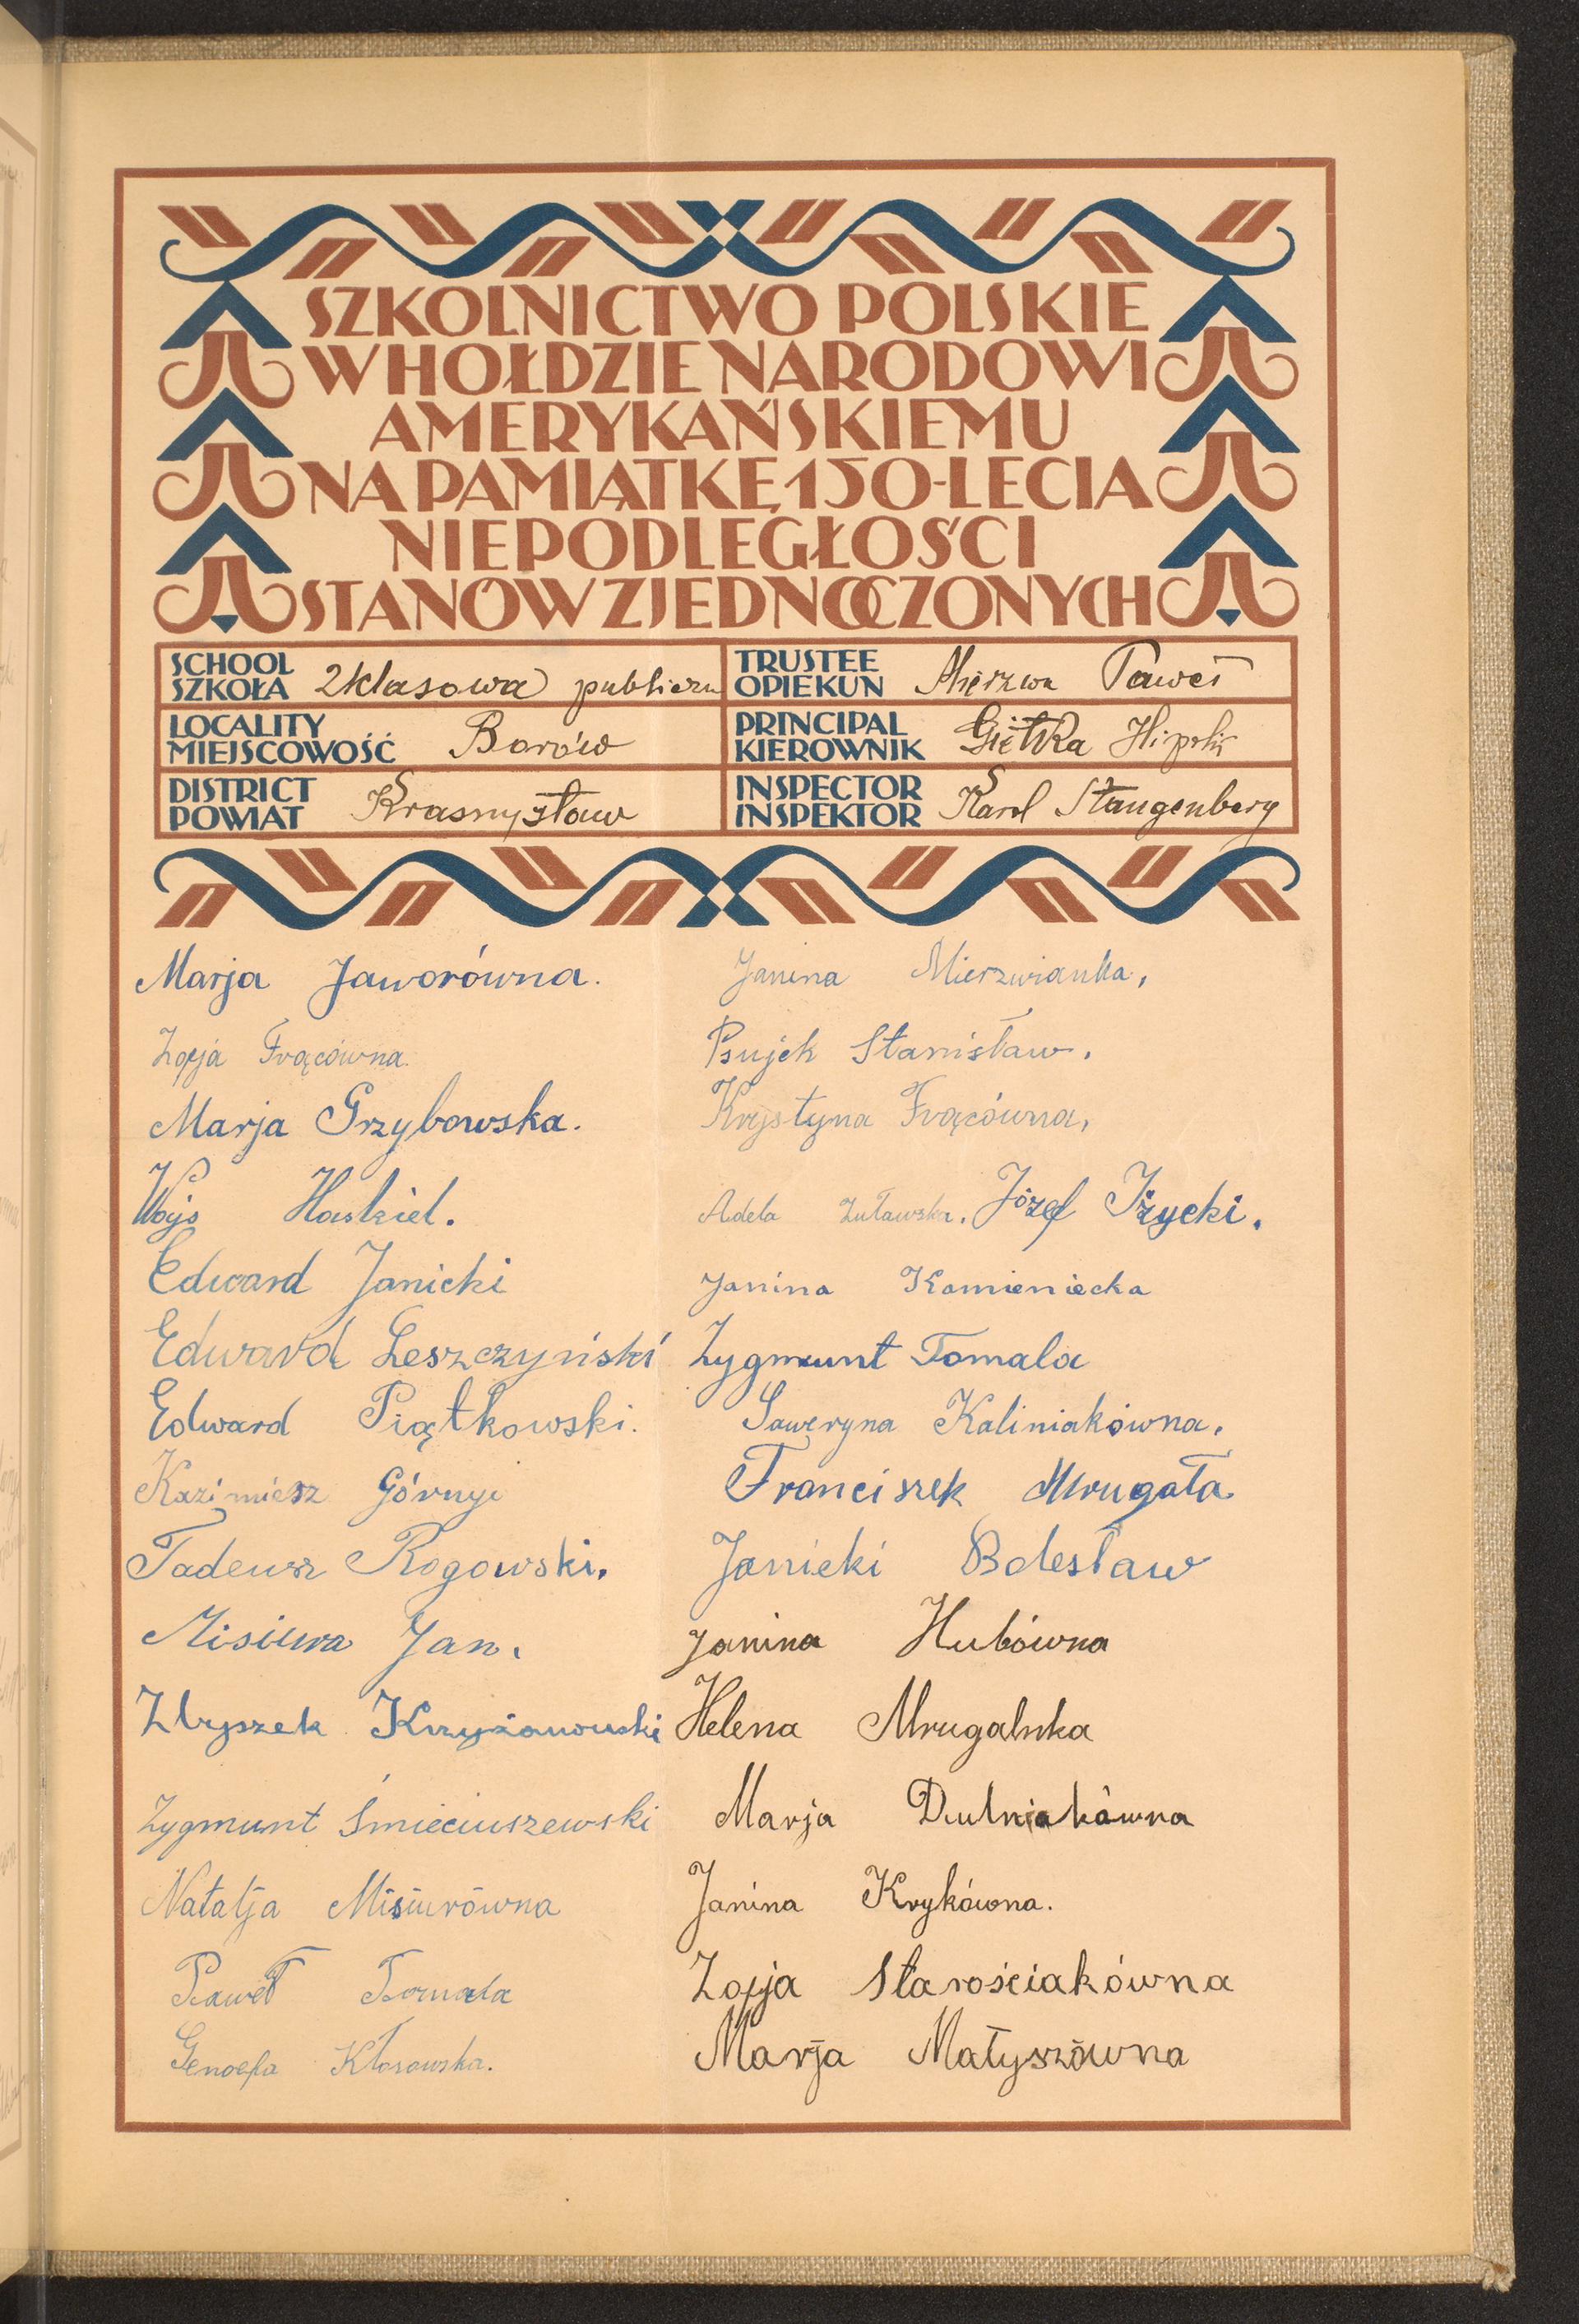 SZKOLNICTWO POLSKIE
W HOŁDZIE NARODOWI
AMERYKAŃSKIEMU
NA PAMIĄTKĘ 150-LECIA
NIEPODLEGŁOŚCI
STANÓW ZJEDNOCZONYCH
SCHOOL
SZKOŁA 2klasowa publiczn
LOCALITY
MIEJSCOWOŚĆ Borów
DISTRICT
POWIAT Krasnystaw
TRUSTEE
OPIEKUN Mierzwa Paweł
PRINCIPAL
KIEROWNIK Giętka
INSPECTOR
INSPEKTOR Karol Stangenberg
Marja Jaworówna.
Zofja Frącówna.
Marja Grzybowska.
Wojs Haskiel.
Edward Janicki
Edward Leszczyński
Edward Piątkowski.
Kazimiesz Górnyi
Tadeusz Rogowski.
Misiura Jan.
Zbyszek Krzyżanowski
Zygmunt Śmieciuszewski
Natalja Misiurówna
Paweł Tomala
Genoefa Kłosowska.
Janina Mierzwianka,
Psujek Stanisław.
Krystyna Frącówna,
Adela Żuławska. Józef Iżycki.
Janina Kamieniecka
Zygmunt Tomala
Saweryna Kaliniakówna.
Franciszek Mrugała
Janicki Bolesław
Janina Hubówna
Helena Mrugalnka
Marja Dulniakówna
Janina Krykówna.
Zofja Starościakówna
Marja Małyszówna